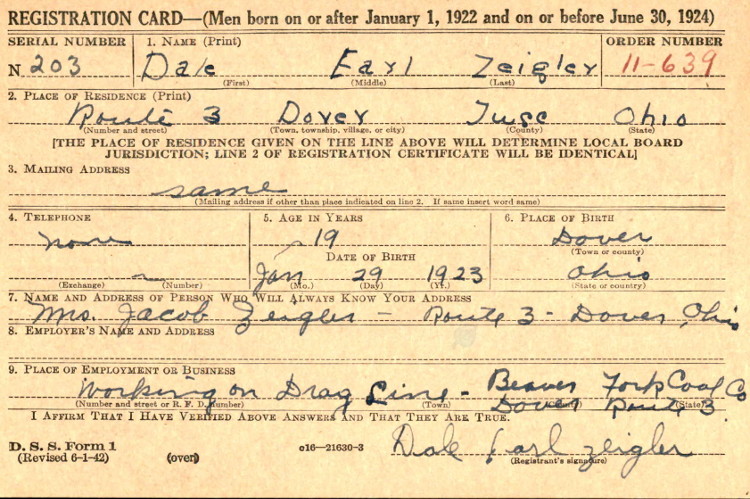 REGISTRATION CARD—(Men born on or after January 1, 1922 and on or before June 30, 1924)
SERIAL NUMBER 1. NAME (Print) ORDER NUMBER
N 203 Dale Earl Zeigler 11-639
(First) (Middle) (Last)
2. PLACE OF RESIDENCE (Print)
Route 3 Dover Tusc Ohio
(Number and street) (Town, township, village, or city) (County) (State)
[THE PLACE OF RESIDENCE GIVEN ON THE LINE ABOVE WILL DETERMINE LOCAL BOARD
JURISDICTION; LINE 2 OF REGISTRATION CERTIFICATE WILL BE IDENTICAL]
3. MAILING ADDRESS
same
(Mailing address if other than place indicated on line 2. If same insert word same)
4. TELEPHONE 5. AGE IN YEARS 6. PLACE OF BIRTH
none 19 Dover
(Town or county)
DATE OF BIRTH
Jan 29 1923 Ohio
(Exchange) (Number) (Mo.) (Day) (Yr.) (State or country)
7. NAME AND ADDRESS OF PERSON WHO WILL ALWAYS KNOW YOUR ADDRESS
Mrs. Jacob Zeigler - Route 3 - Dover, Ohio
8. EMPLOYER'S NAME AND ADDRESS
9. PLACE OF EMPLOYMENT OR BUSINESS
Working on Drag Line - Beaver Fork Coal Co
Dover Route 3
(Number and street or R. F. D. number) (Town) (State)
I AFFIRM THAT I HAVE VERIFIED ABOVE ANSWERS AND THAT THEY ARE TRUE.
D. S. S. Form 1
(Revised 6-1-42) (over) c16—21630-3 Dale Earl Zeigler
(Registrant's signature)